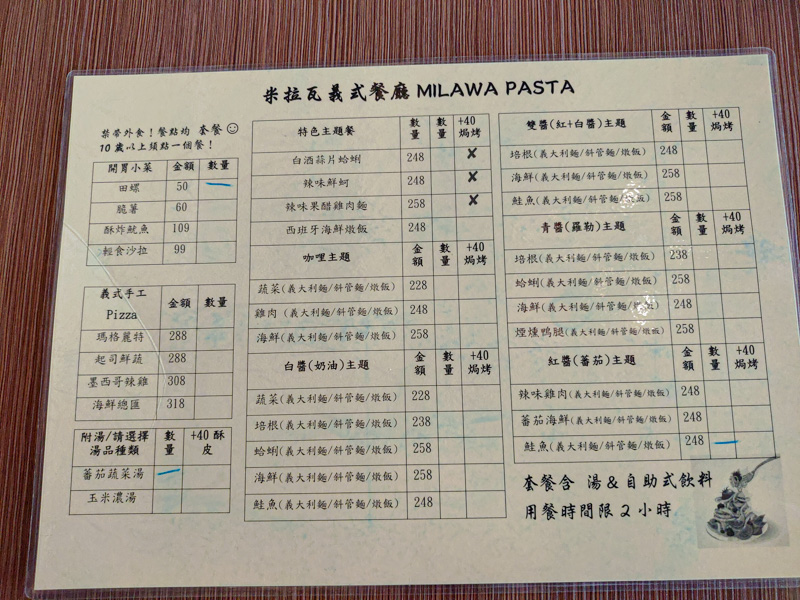 米拉瓦義式餐廳 MILAWA PASTA
禁帶外食！餐點均 套餐☺
10 歲以上須點一個餐！
開胃小菜 金額 數量
田螺 50
脆薯 60
酥炸魷魚 109
輕食沙拉 99
義式手工 Pizza 金額 數量
瑪格麗特 288
起司鮮蔬 288
墨西哥辣雞 308
海鮮總匯 318
附湯/請選擇湯品種類 數量 +40 酥皮
蕃茄蔬菜湯
玉米濃湯
特色主題餐 數量 +40 焗烤
白酒蒜片蛤蜊 248 ✘
辣味鮮蚵 248 ✘
辣味果醋雞肉麵 258 ✘
西班牙海鮮燉飯
咖哩主題 金額 數量 +40 焗烤
蔬菜(義大利麵/斜管麵/燉飯) 228
雞肉 (義大利麵/斜管麵/燉飯) 248
海鮮(義大利麵/斜管麵/燉飯) 258
白醬(奶油)主題 金額 數量 +40 焗烤
蔬菜(義大利麵/斜管麵/燉飯) 228
培根(義大利麵/斜管麵/燉飯) 238
蛤蜊(義大利麵/斜管麵/燉飯) 258
海鮮(義大利麵/斜管麵/燉飯) 258
鮭魚(義大利麵/斜管麵/燉飯) 248
雙醬(紅+白醬)主題 金額 數量 +40 焗烤
培根(義大利麵/斜管麵/燉飯) 248
海鮮(義大利麵/斜管麵/燉飯) 258
鮭魚(義大利麵/斜管麵/燉飯) 258
青醬(羅勒)主題 金額 數量 +40 焗烤
培根(義大利麵/斜管麵/燉飯) 238
蛤蜊(義大利麵/斜管麵/燉飯) 258
海鮮(義大利麵/斜管麵/燉飯) 248
煙燻鴨腿(義大利麵/斜管麵/燉飯) 258
紅醬(蕃茄)主題 金額 數量 +40 焗烤
辣味雞肉(義大利麵/斜管麵/燉飯) 248
蕃茄海鮮(義大利麵/斜管麵/燉飯) 248
鮭魚(義大利麵/斜管麵/燉飯) 248
套餐含 湯＆自助式飲料
用餐時間限 2 小時